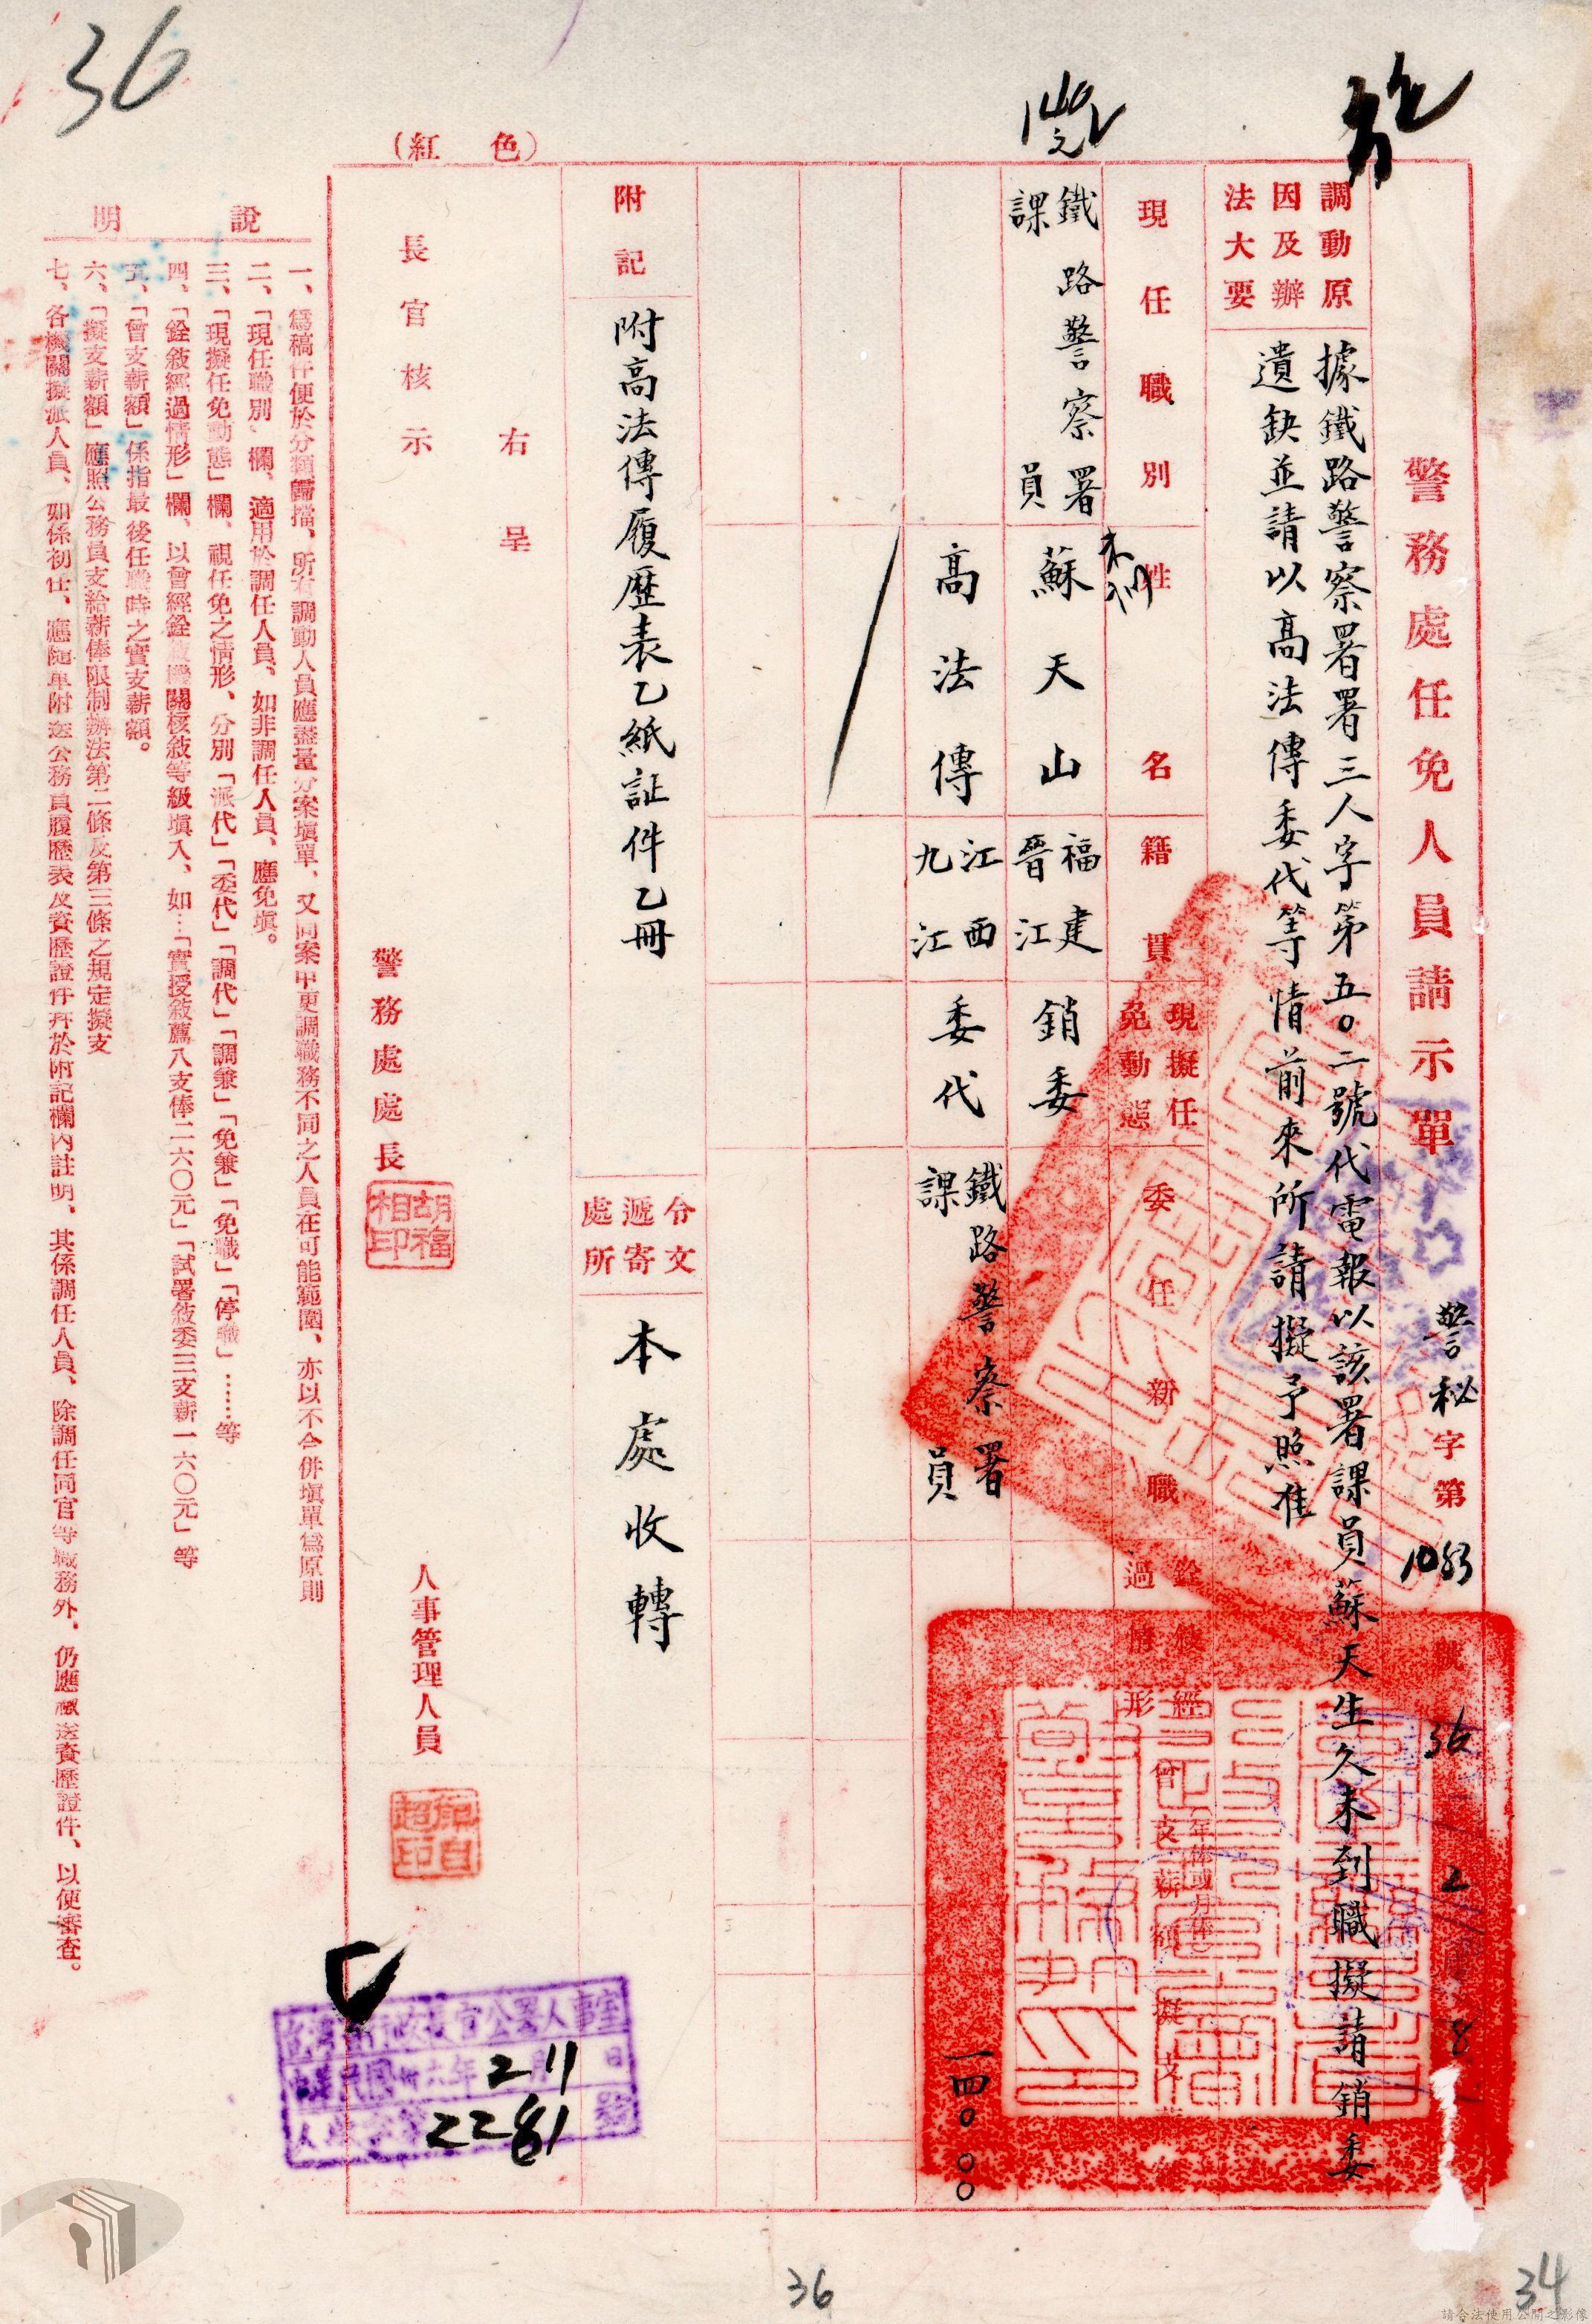 36
（紅色）
警務處任免人員請示單
警秘字第1083號
36 2 8
調動原因及辦法大要
據鐵路警察署署三人字第五〇二號代電報以該署課員蘇天生久未到職擬請銷委
遺缺並請以高法傳委代等情前來所請擬予照准
現任職別
姓名
籍貫
現擬任免動態
委任新職
銓敍經過情形
曾支薪額
(年俸或月俸)
擬支
鐵路警察署
課員
蘇天山
福建
晉江
銷委
高法傳
江西
九江
委代
鐵路警察署
課員
一四〇〇〇
附記
附高法傳履歷表乙紙証件乙冊
令文遞寄處所
本處收轉
右呈
長官核示
警務處處長
胡福相印
人事管理人員
台灣省行政長官公署人事室
中華民國卅六年2月11日
2281號
說明
一、爲稿件便於分類歸擋、所有調動人員應盡量分案塡單、又同案中更調職務不同之人員在可能範圍、亦以不合併塡單爲原則
二、「現任職別」欄、適用於調任人員、如非調任人員、應免塡。
三、「現擬任免動態」欄、視任免之情形、分別「派代」「委代」「調代」「調兼」「免兼」「免職」「停職」……等
四、「銓敍經過情形」欄、以曾經銓敍機關核敍等級塡入、如…「實授敍薦八支俸二六〇元」「試署敍委三支薪一六〇元」等
五、「曾支薪額」係指最後任職時之實支薪額。
六、「擬支薪額」應照公務員支給薪俸限制辦法第二條及第三條之規定擬支
七、各機關擬派人員、如係初任、應隨單附送公務員履歷表及資歷證件幷於附記欄內註明、其係調任人員、除調任同官等職務外、仍應檢送資歷證件、以便審查。
36
34
請合法使用公開之影像